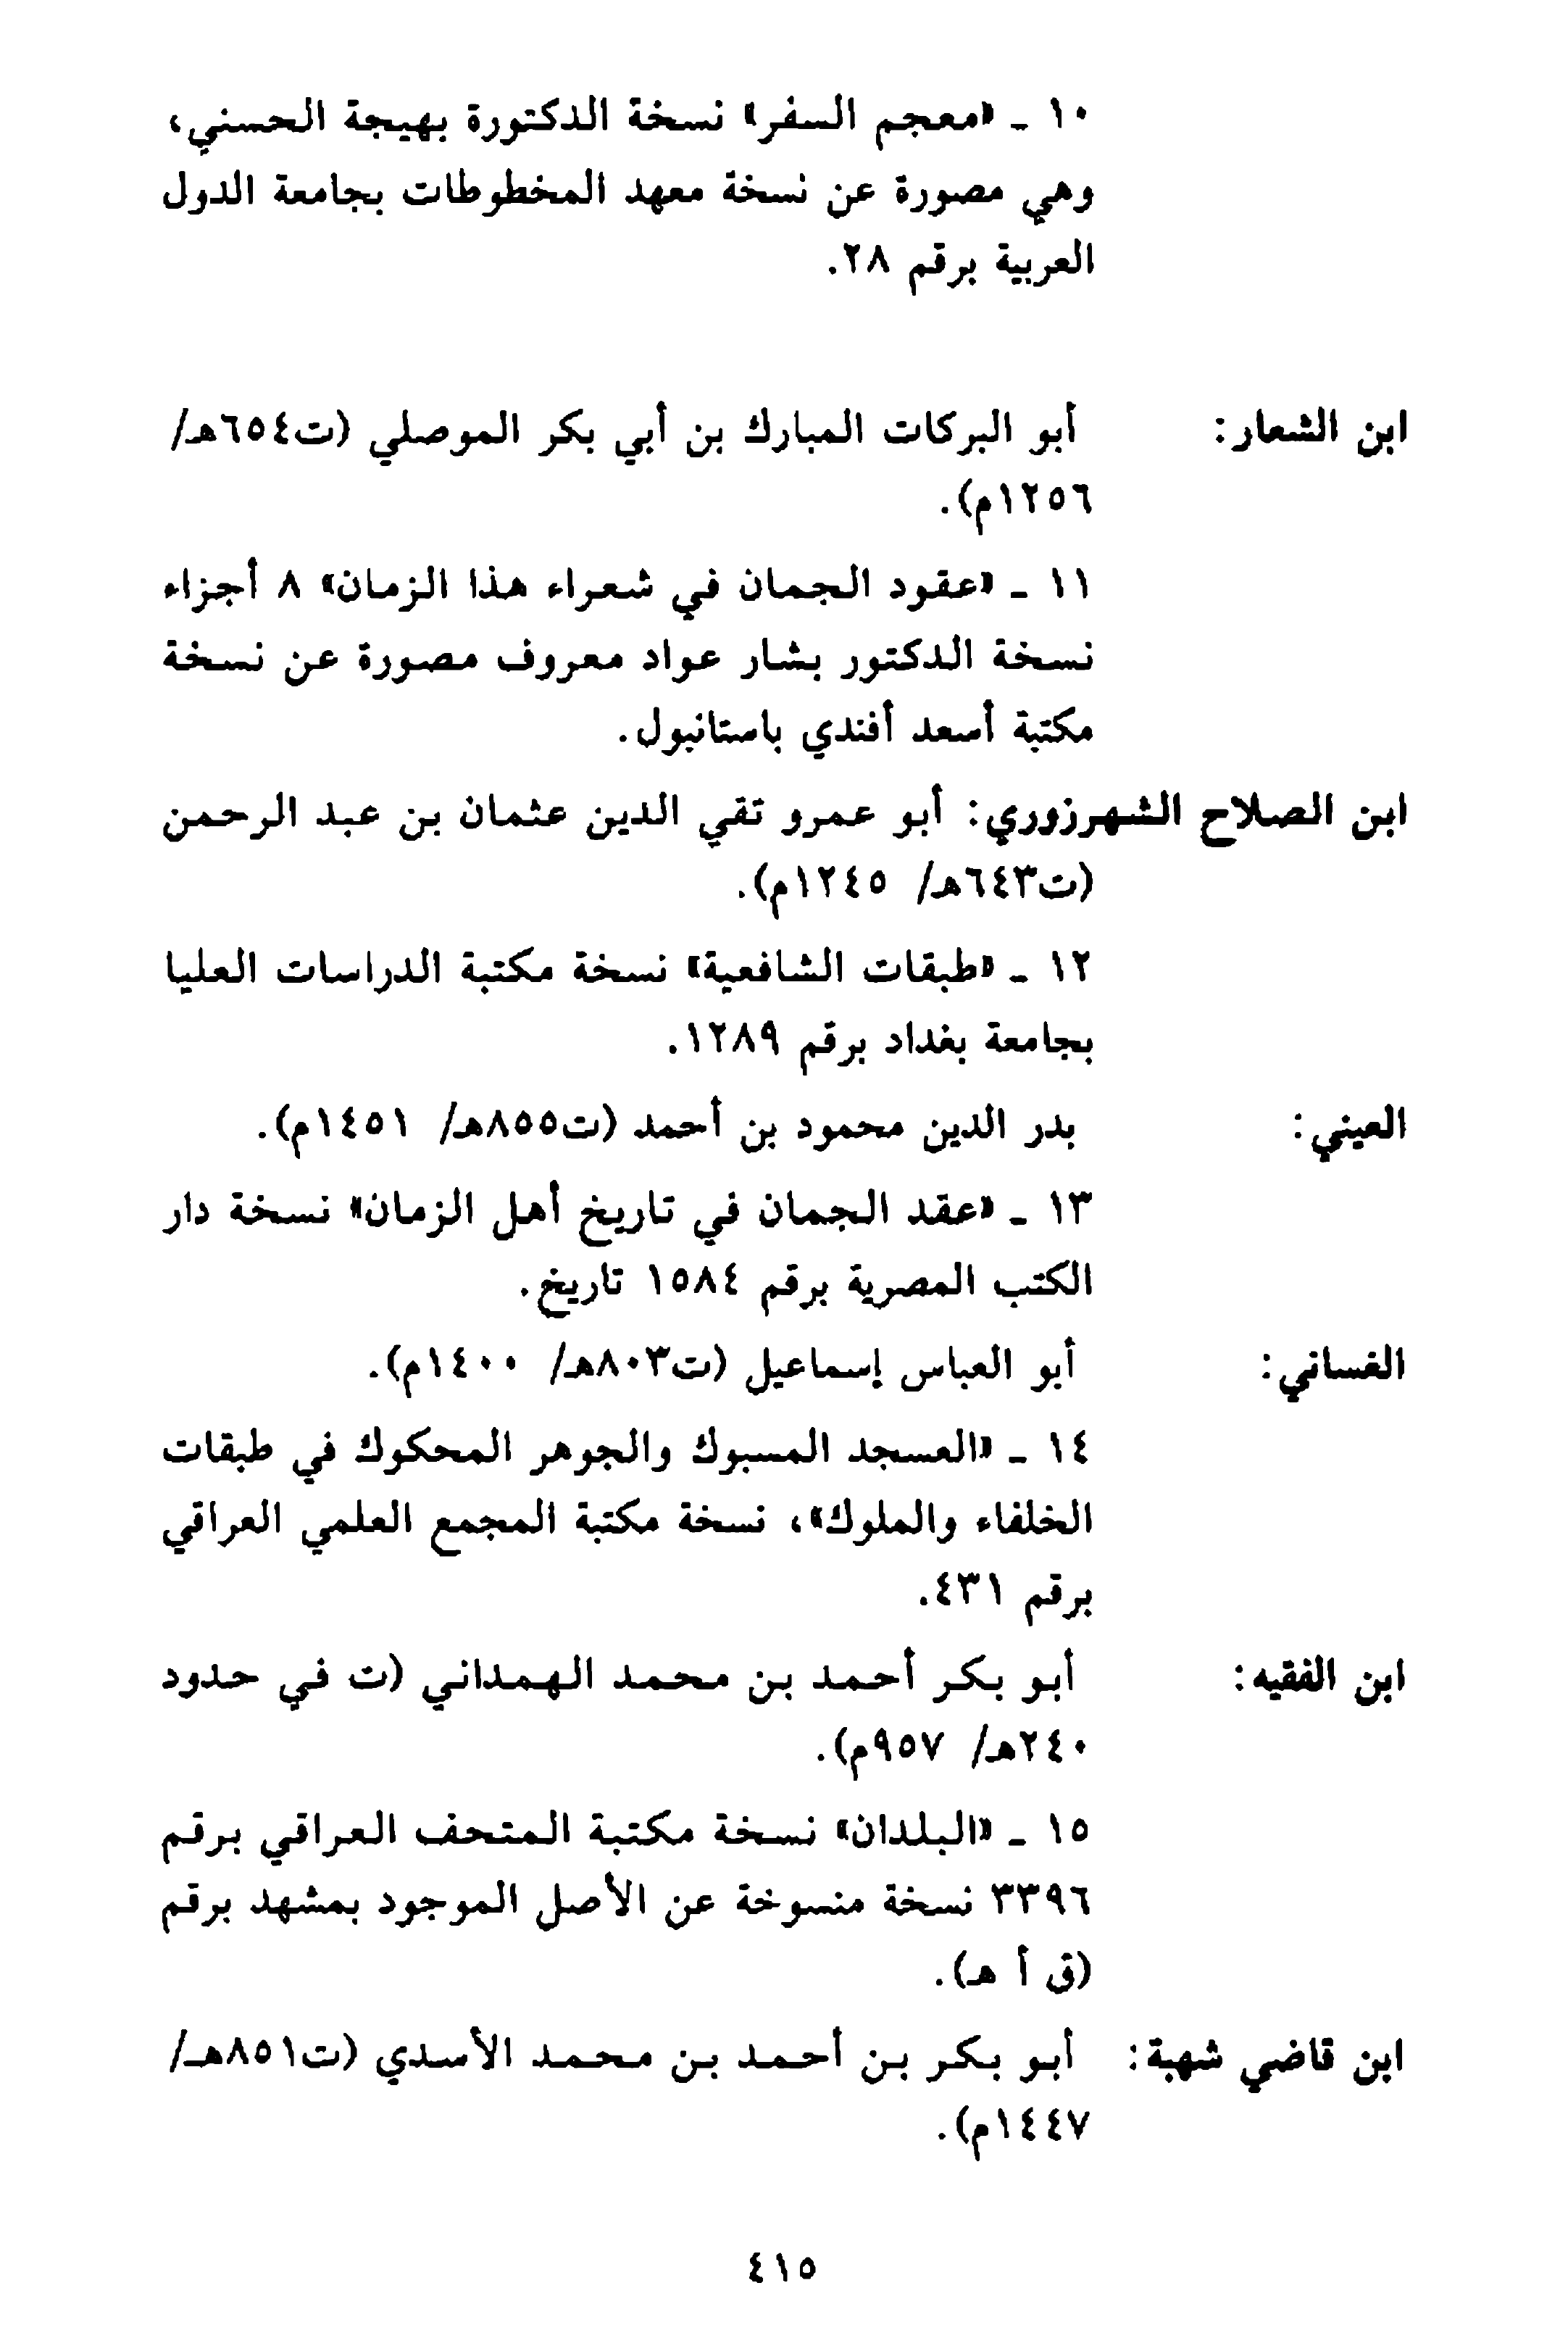 ١٠ ـ «معجم السفر» نسخة الدكتورة بهيجة الحسني،
وهي مصورة عن نسخة معهد المخطوطات بجامعة الدول
العربية برقم ٢٨.
ابن الشعار: أبو البركات المبارك بن أبي بكر الموصلي (ت٦٥٤هـ/
١٢٥٦م).
١١ ـ «عقود الجمان في شعراء هذا الزمان» ٨ أجزاء
نسخة الدكتور بشار عواد معروف مصورة عن نسخة
مكتبة أسعد أفندي باستانبول.
ابن الصلاح الشهرزوري: أبو عمرو تقي الدين عثمان بن عبد الرحمن
(ت٦٤٣هـ/ ١٢٤٥م).
١٢ ـ «طبقات الشافعية» نسخة مكتبة الدراسات العليا
بجامعة بغداد برقم ١٢٨٩.
العيني: بدر الدين محمود بن أحمد (ت٨٥٥هـ/ ١٤٥١م).
١٣ ـ «عقد الجمان في تاريخ أهل الزمان» نسخة دار
الكتب المصرية برقم ١٥٨٤ تاريخ.
الغساني: أبو العباس إسماعيل (ت٨٠٣هـ/ ١٤٠٠م).
١٤ ـ «العسجد المسبوك والجوهر المحكوك في طبقات
الخلفاء والملوك»، نسخة مكتبة المجمع العلمي العراقي
برقم ٤٣١.
ابن الفقيه: أبو بكر أحمد بن محمد الهمداني (ت في حدود
٢٤٠هـ/ ٩٥٧م).
١٥ ـ «البلدان» نسخة مكتبة المتحف العراقي برقم
٣٣٩٦ نسخة منسوخة عن الأصل الموجود بمشهد برقم
(ق أ هـ).
ابن قاضي شهبة: أبو بكر بن أحمد بن محمد الأسدي (ت٨٥١هـ/
١٤٤٧م).
٤١٥